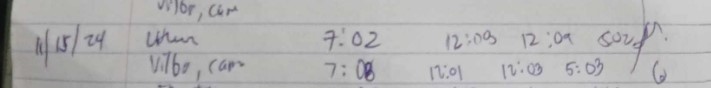 Vilbo, cam
11/15/24 7:02 12:03 12:09 502
Vilbo, cam 7:08 12:01 12:03 5:03